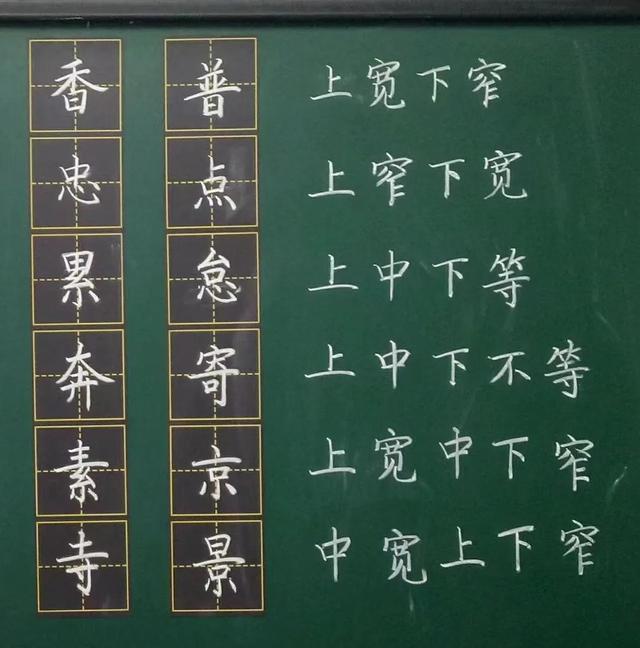 香 普 上宽下窄
忠 点 上窄下宽
累 怠 上中下等
奔 寄 上中下不等
素 京 上宽中下窄
寺 景 中宽上下窄